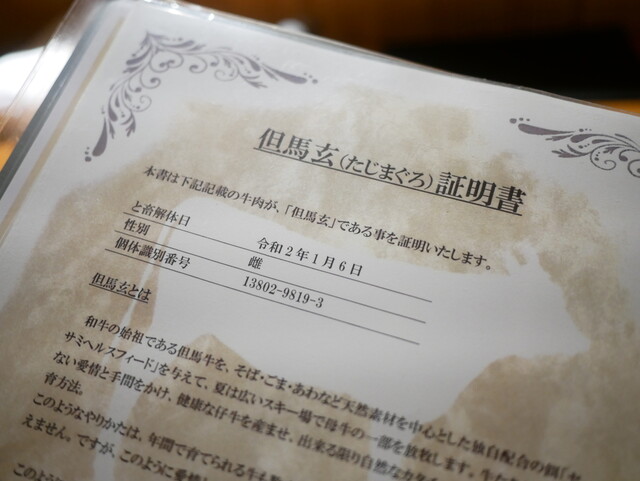 但馬玄(たじまぐろ)証明書
本書は下記記載の牛肉が、「但馬玄」である事を証明いたします。
と畜解体日 令和2年1月6日
性別 雌
個体識別番号 13802-9819-3
但馬玄とは
和牛の始祖である但馬牛を、そば・ごま・あわなど天然素材を中心とした独自配合の餌「
サミヘルスフィード」を与えて、夏は広いスキー場で母牛の一部を放牧します。
ない愛情と手間をかけ、健康な仔牛を産ませ、出来る限り自然な
育方法。
このようなやりかたは、年間で育てられる牛も
えません。ですが、このように愛情
このよう